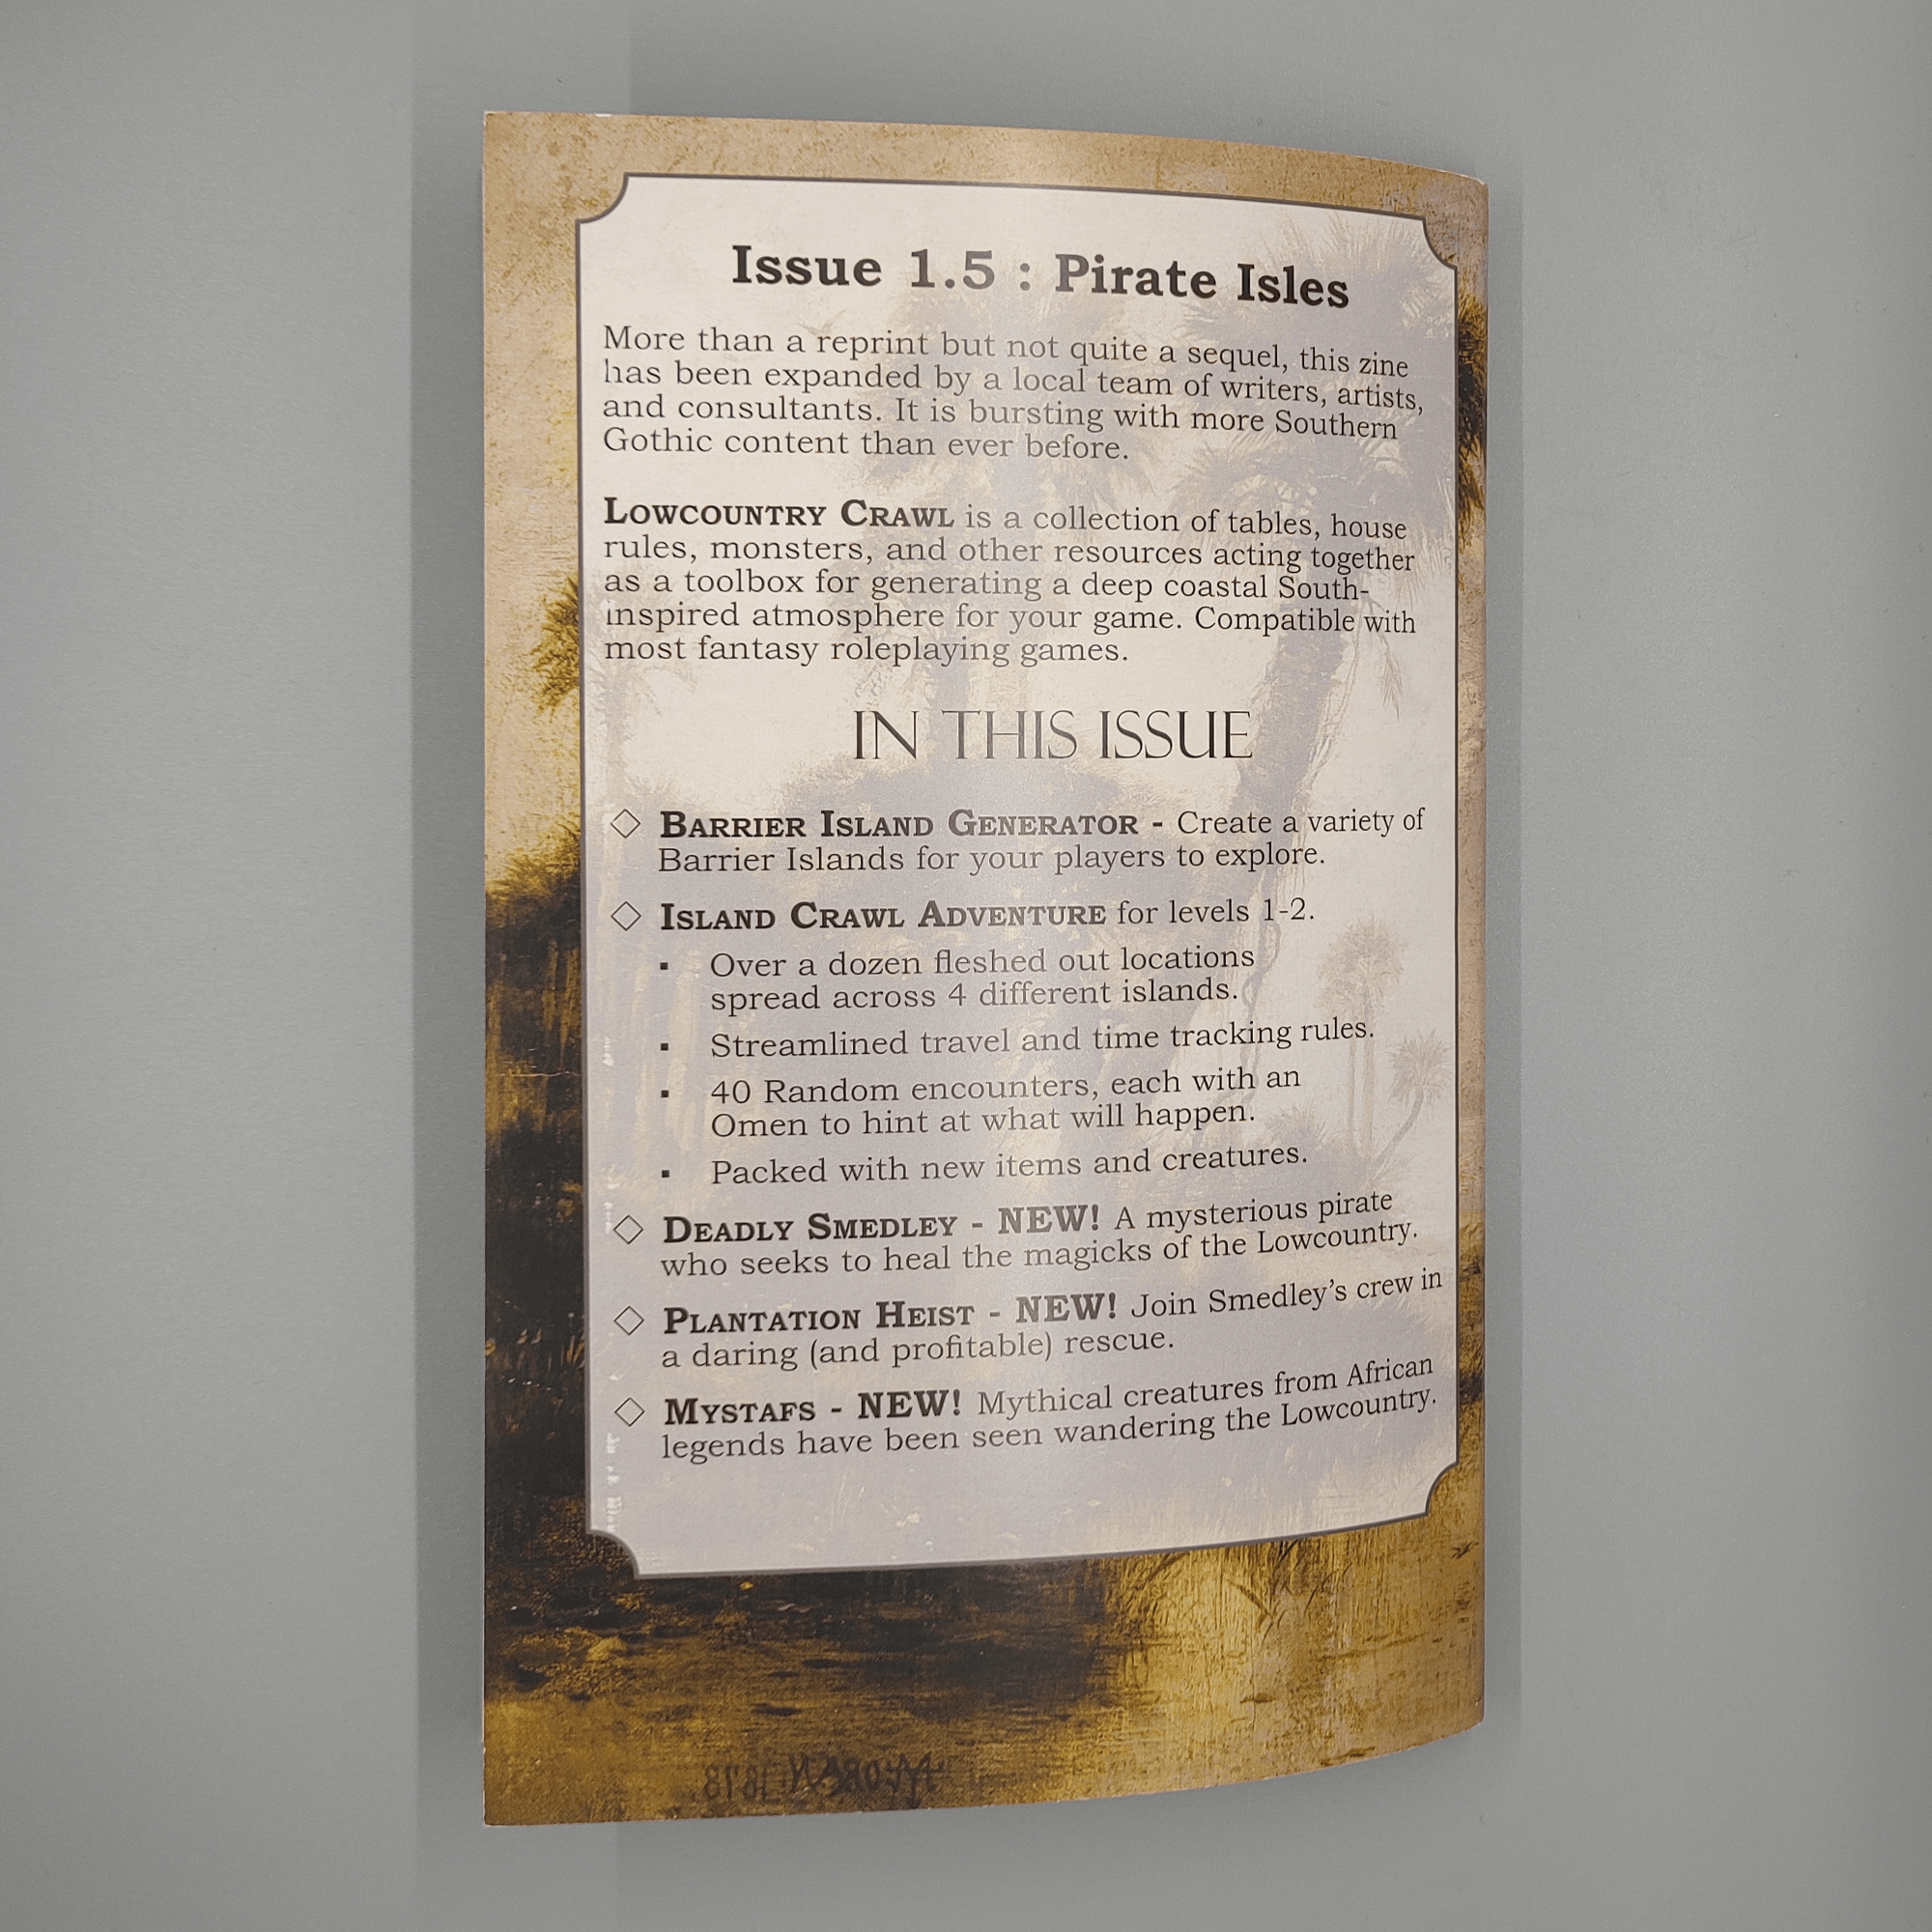 Issue 1.5 : Pirate Isles
More than a reprint but not quite a sequel, this zine
has been expanded by a local team of writers, artists,
and consultants. It is bursting with more Southern
Gothic content than ever before.
LOWCOUNTRY CRAWL is a collection of tables, house
rules, monsters, and other resources acting together
as a toolbox for generating a deep coastal South-
inspired atmosphere for your game. Compatible with
most fantasy roleplaying games.
IN THIS ISSUE
◇ BARRIER ISLAND GENERATOR - Create a variety of
Barrier Islands for your players to explore.
◇ ISLAND CRAWL ADVENTURE for levels 1-2.
▪ Over a dozen fleshed out locations
spread across 4 different islands.
▪ Streamlined travel and time tracking rules.
▪ 40 Random encounters, each with an
Omen to hint at what will happen.
▪ Packed with new items and creatures.
◇ DEADLY SMEDLEY - NEW! A mysterious pirate
who seeks to heal the magicks of the Lowcountry.
◇ PLANTATION HEIST - NEW! Join Smedley's crew in
a daring (and profitable) rescue.
◇ MYSTAFS - NEW! Mythical creatures from African
legends have been seen wandering the Lowcountry.